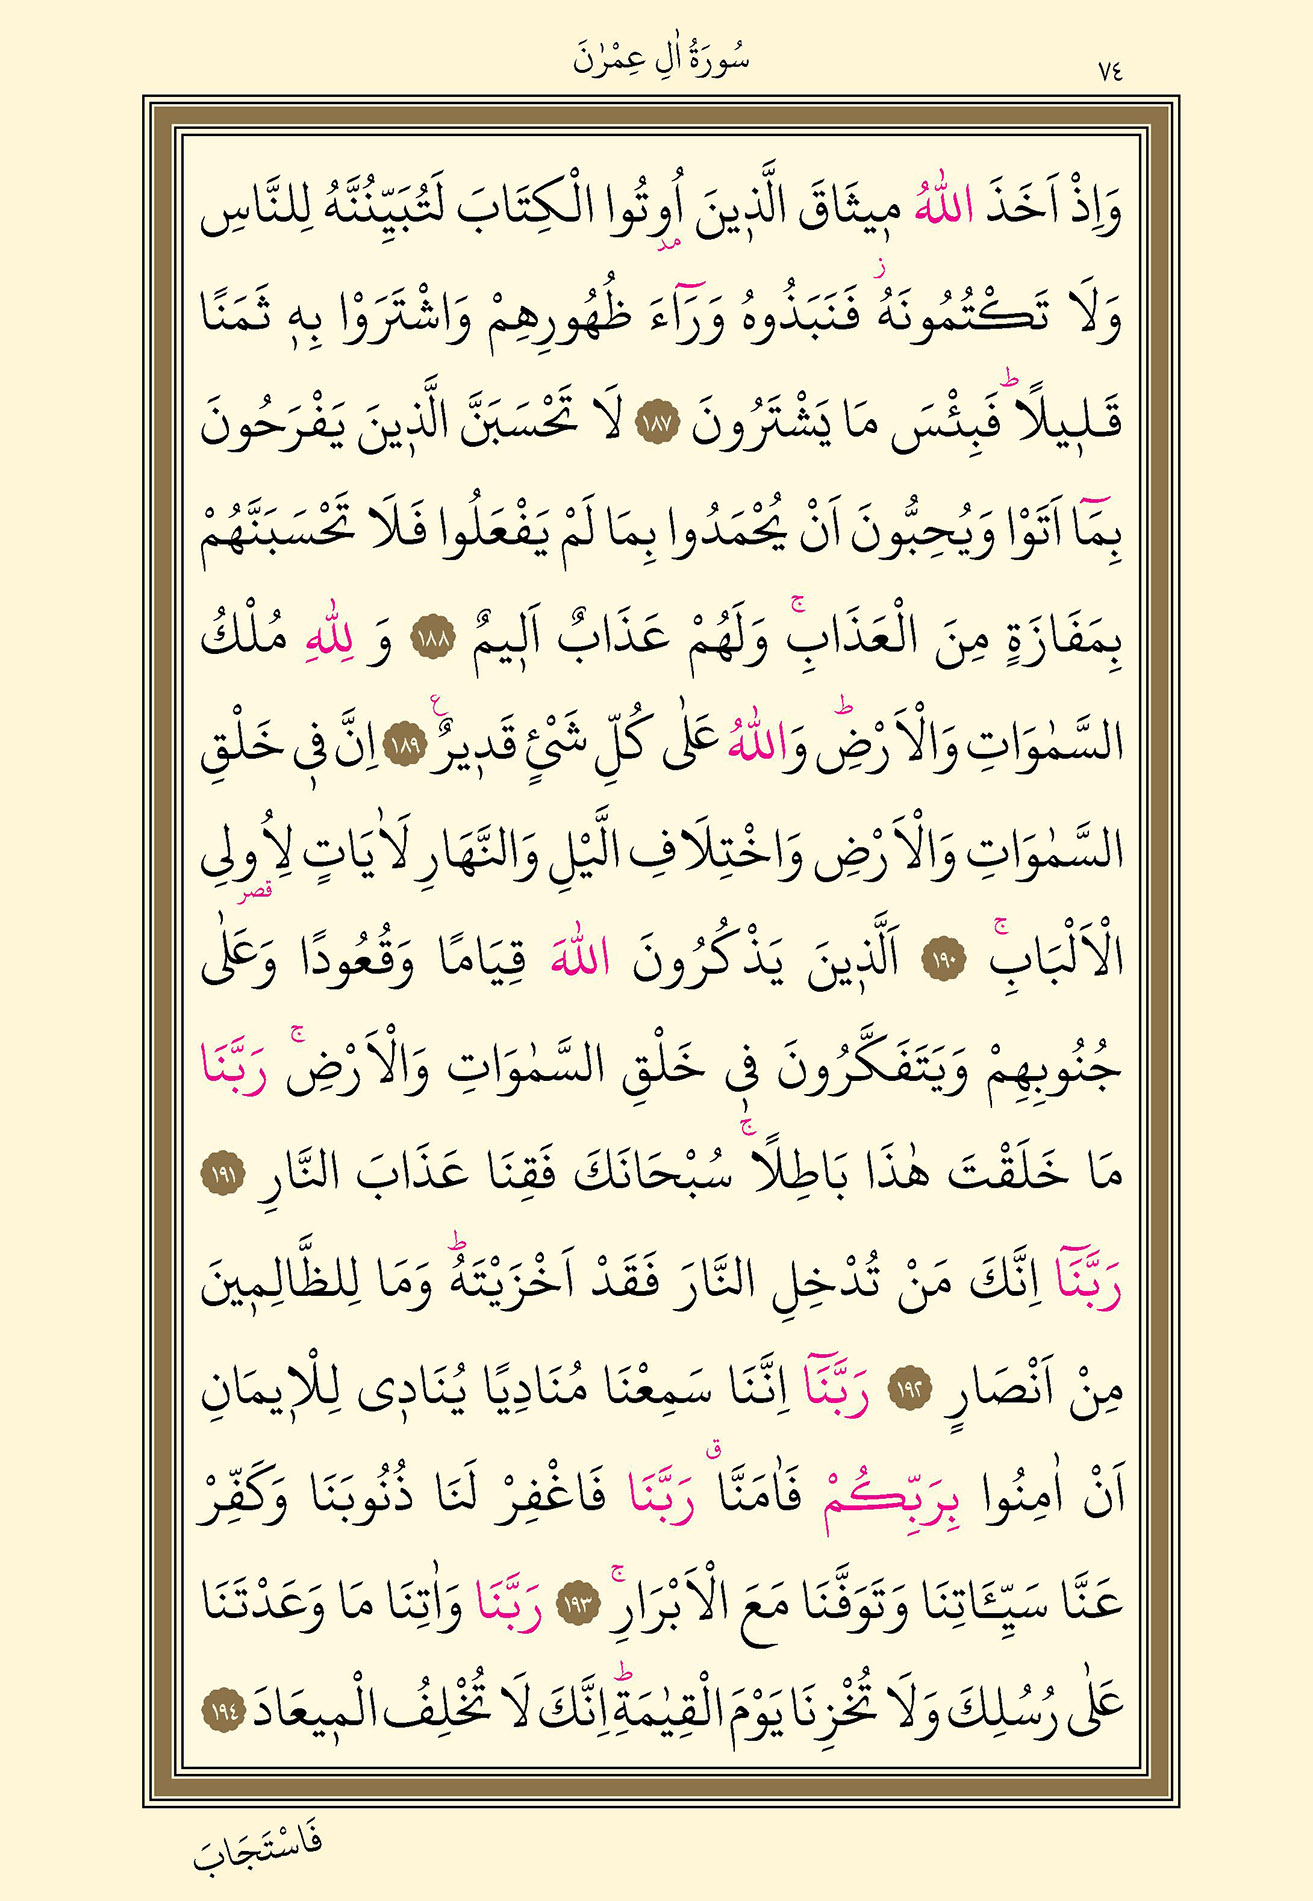 ٧٤
سُورَةُ اٰلِ عِمْرٰنَ
وَاِذْ اَخَذَ اللّٰهُ م۪يثَاقَ الَّذ۪ينَ اُو۫تُوا الْكِتَابَ لَتُبَيِّنُنَّهُ لِلنَّاسِ
مد
وَلَا تَكْتُمُونَهُۘ فَنَبَذُوهُ وَرَٓاءَ ظُهُورِهِمْ وَاشْتَرَوْا بِه۪ ثَمَنًا
قَل۪يلًاۜ فَبِئْسَ مَا يَشْتَرُونَ ﴿١٨٧﴾ لَا تَحْسَبَنَّ الَّذ۪ينَ يَفْرَحُونَ
بِمَٓا اَتَوْا وَيُحِبُّونَ اَنْ يُحْمَدُوا بِمَا لَمْ يَفْعَلُوا فَلَا تَحْسَبَنَّهُمْ
بِمَفَازَةٍ مِنَ الْعَذَابِۚ وَلَهُمْ عَذَابٌ اَل۪يمٌ ﴿١٨٨﴾ وَ لِلّٰهِ مُلْكُ
السَّمٰوَاتِ وَالْاَرْضِۜ وَاللّٰهُ عَلٰى كُلِّ شَيْئٍ قَد۪يرٌ۟ ﴿١٨٩﴾ اِنَّ ف۪ي خَلْقِ
السَّمٰوَاتِ وَالْاَرْضِ وَاخْتِلَافِ الَّيْلِ وَالنَّهَارِ لَاٰيَاتٍ لِاُولِي
قصر
الْاَلْبَابِۚ ﴿١٩٠﴾ اَلَّذ۪ينَ يَذْكُرُونَ اللّٰهَ قِيَامًا وَقُعُودًا وَعَلٰى
جُنُوبِهِمْ وَيَتَفَكَّرُونَ ف۪ي خَلْقِ السَّمٰوَاتِ وَالْاَرْضِۚ رَبَّنَا
مَا خَلَقْتَ هٰذَا بَاطِلًاۚ سُبْحَانَكَ فَقِنَا عَذَابَ النَّارِ ﴿١٩١﴾
رَبَّنَٓا اِنَّكَ مَنْ تُدْخِلِ النَّارَ فَقَدْ اَخْزَيْتَهُۜ وَمَا لِلظَّالِم۪ينَ
مِنْ اَنْصَارٍ ﴿١٩٢﴾ رَبَّنَٓا اِنَّنَا سَمِعْنَا مُنَادِيًا يُنَاد۪ي لِلْا۪يمَانِ
اَنْ اٰمِنُوا بِرَبِّكُمْ فَاٰمَنَّاۗ رَبَّنَا فَاغْفِرْ لَنَا ذُنُوبَنَا وَكَفِّرْ
عَنَّا سَيِّـَٔاتِنَا وَتَوَفَّنَا مَعَ الْاَبْرَارِۚ ﴿١٩٣﴾ رَبَّنَا وَاٰتِنَا مَا وَعَدْتَنَا
عَلٰى رُسُلِكَ وَلَا تُخْزِنَا يَوْمَ الْقِيٰمَةِۜ اِنَّكَ لَا تُخْلِفُ الْم۪يعَادَ ﴿١٩٤﴾
فَاسْتَجَابَ